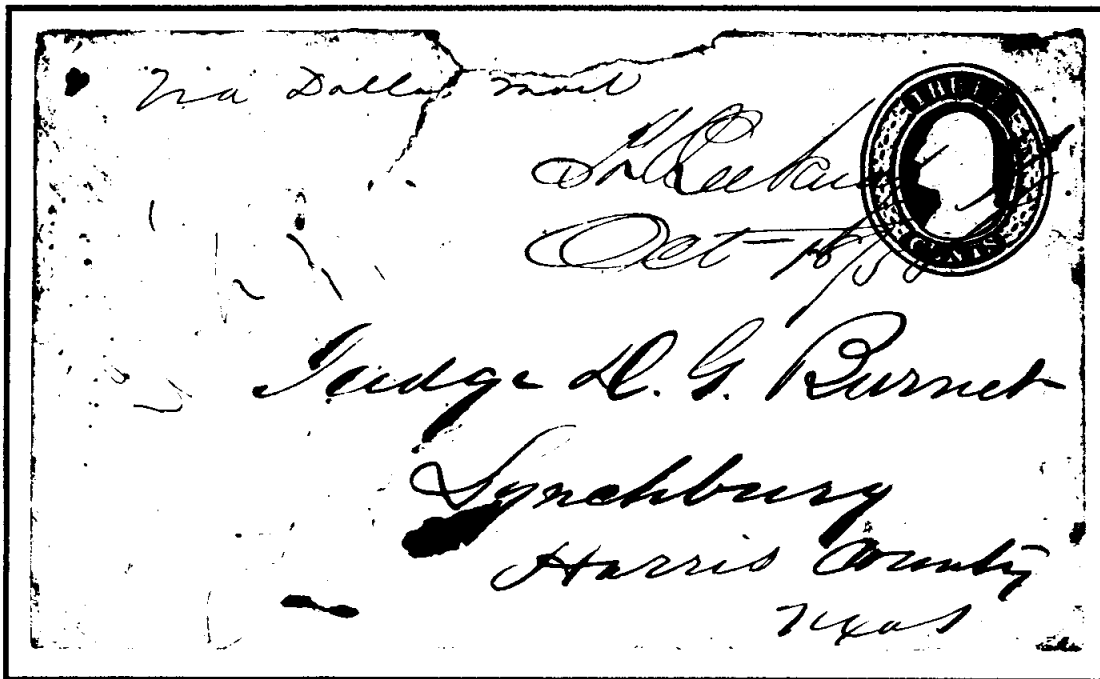 Via Dallas mail
THREE
CENTS
Oct 18/5
Judge D. G. Burnet
Lynchburg
Harris County
Texas